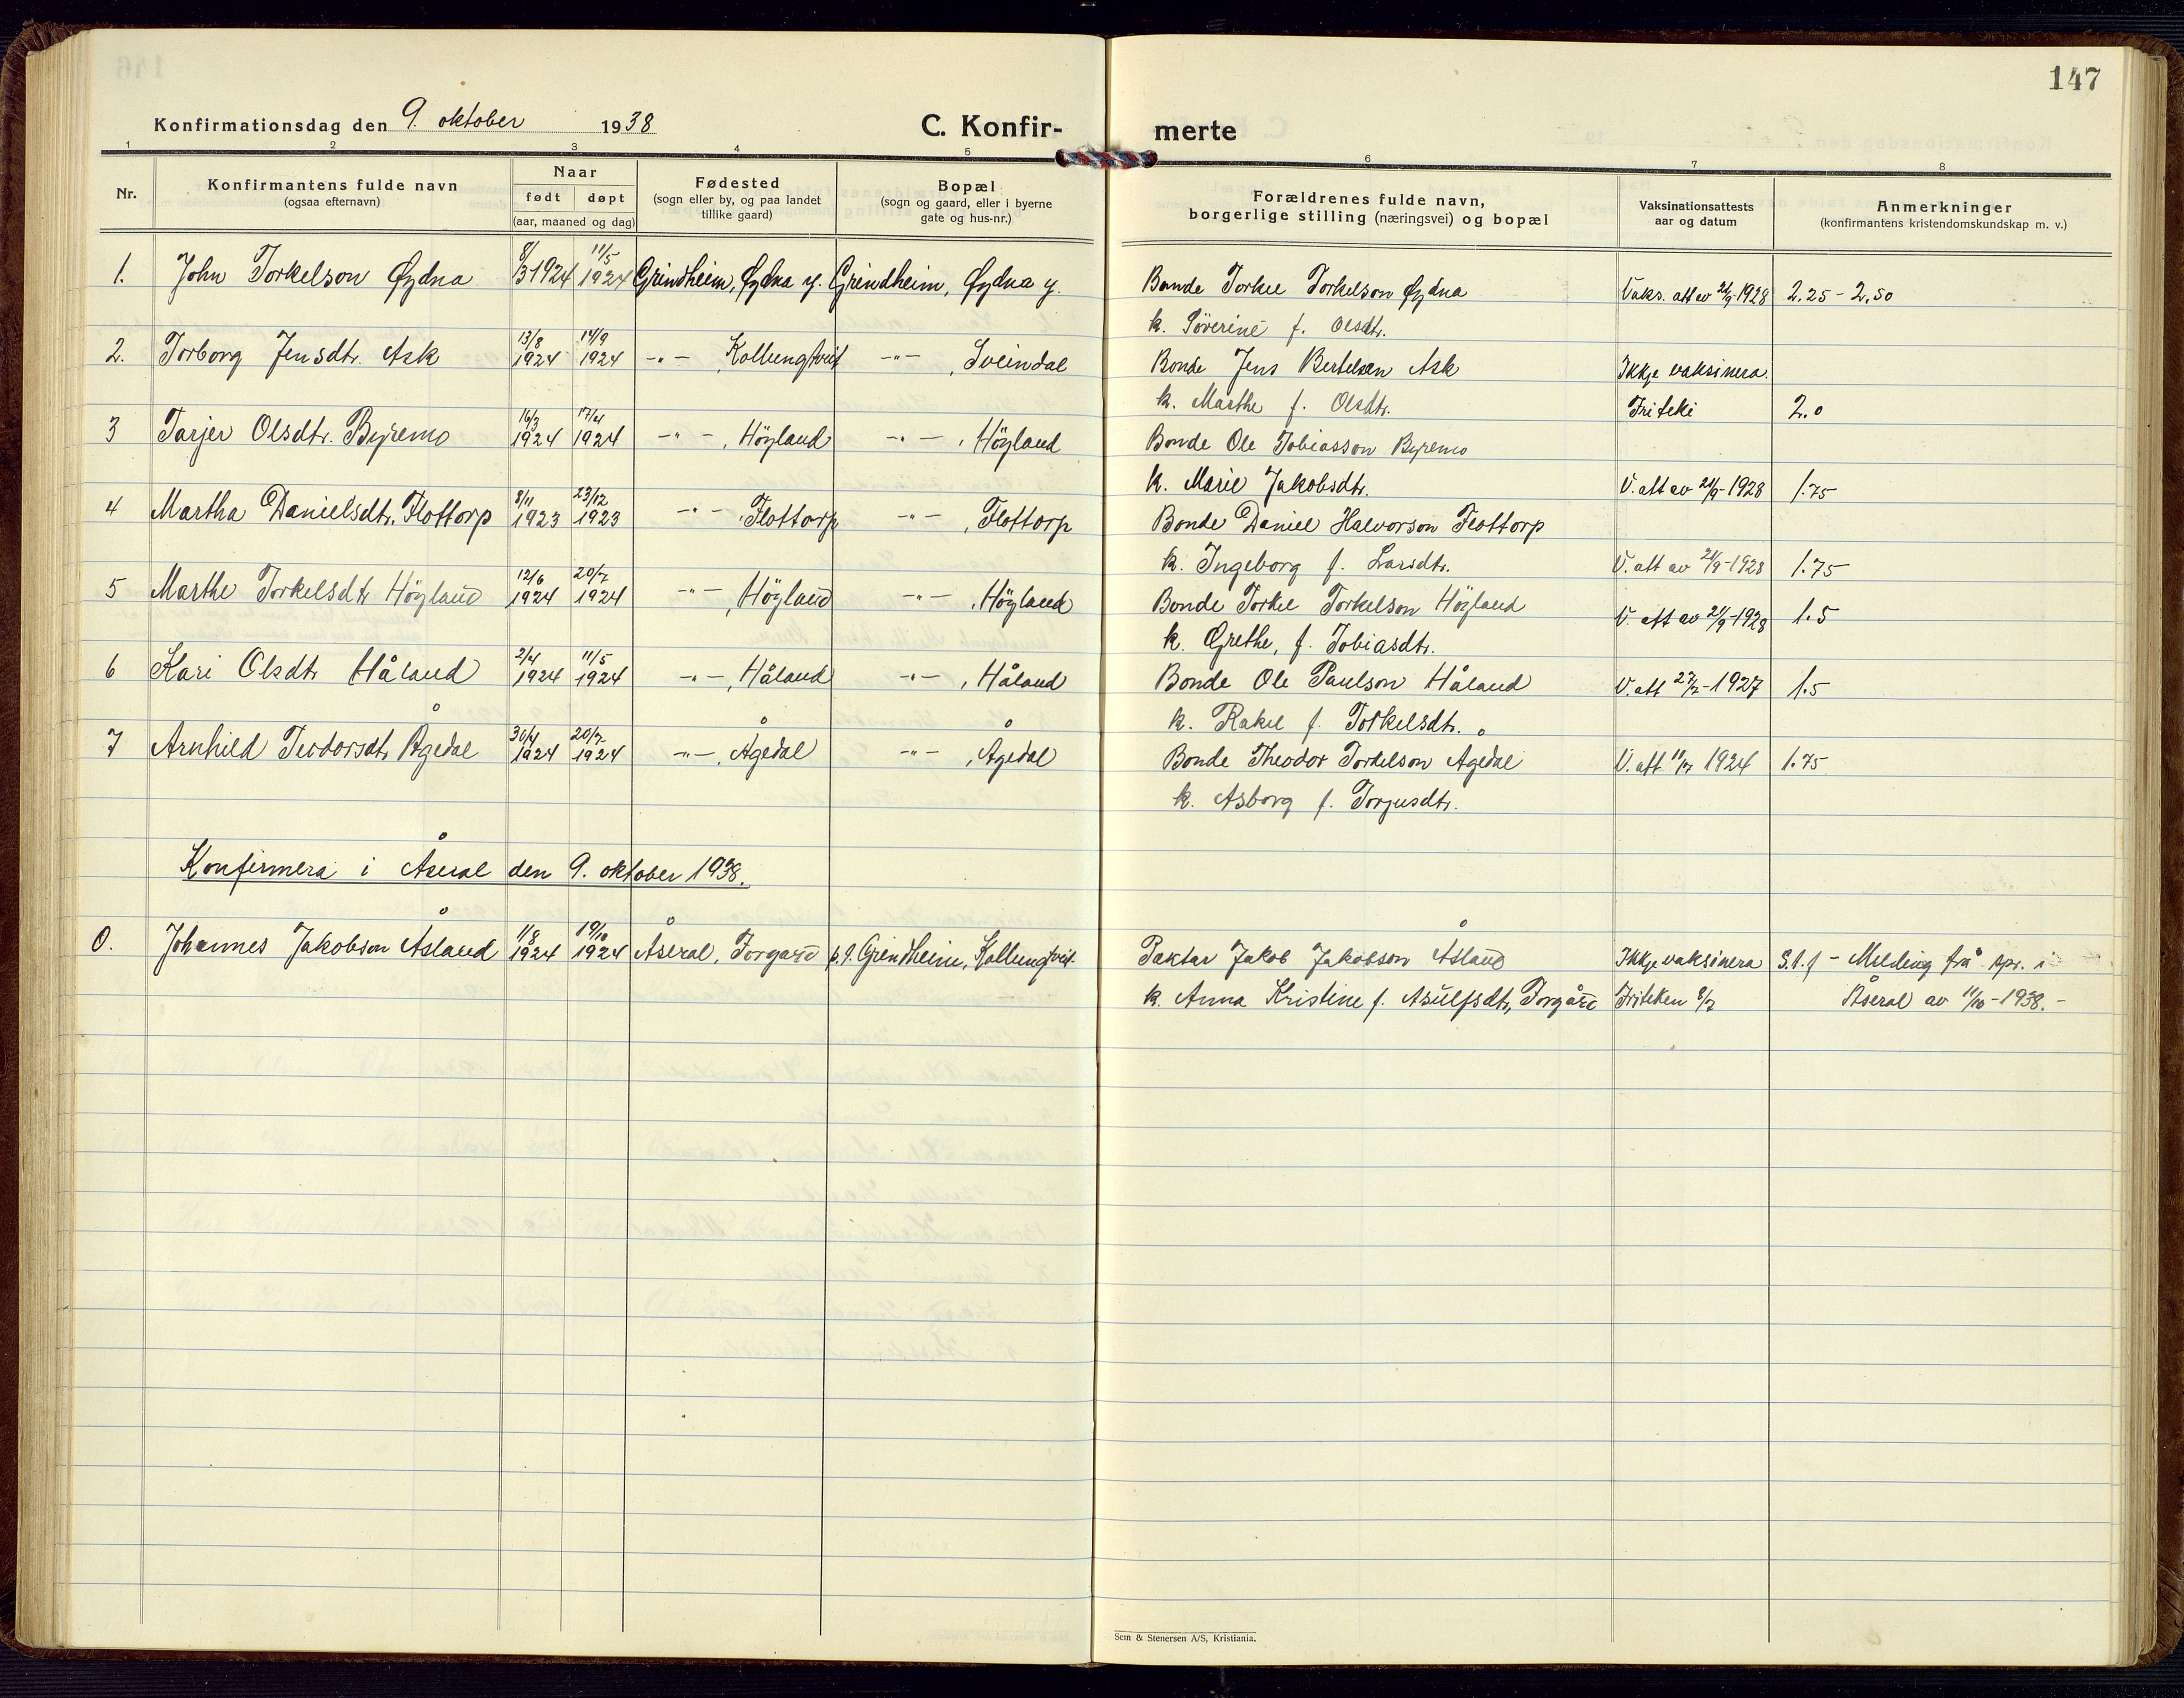 147
Konfirmationsdag den 9. oktober 1938
C. Konfir- merte
1 2 3 4 5 6 7 8
Nr.
Konfirmantens fulde navn
(ogsaa efternavn)
Naar
født døpt
(aar, maaned og dag)
Fødested
(sogn eller by, og paa landet
tillike gaard)
Bopæl
(sogn og gaard, eller i byerne
gate og hus-nr.)
Forældrenes fulde navn,
borgerlige stilling (næringsvei) og bopæl
Vaksinationsattests
aar og datum
Anmerkninger
(konfirmantens kristendomskundskap m. v.)
1. John Torkelson Øydna 8/3 1924 11/5 1924 Grindheim, Øydna y. Grindheim, Øydna y. Bonde Torkel Torkelson Øydna Vaks. att av 21/9-1928 2.25 - 2.50
k. Söverine f. Olsdtr.
2. Torborg Jensdtr. Ask 13/8 1924 14/9 1924 -"- , Kollungtveit -"- , Sveindal Bonde Jens Bertelsen Ask Ikkje vaksinera.
k. Marthe f. Olsdtr. Friteki 2.0
3 Tarjer Olsdtr. Byremo 16/3 1924 17/4 1924 -"- , Höyland -"- , Höyland Bonde Ole Tobiasson Byremo
k. Marie Jakobsdtr. V. att av 21/9-1928 1.75
4 Martha Danielsdtr. Flottorp 8/11 1923 23/12 1923 -"- , Flottorp -"- , Flottorp Bonde Daniel Halvorson Flottorp
k. Ingeborg f. Larsdtr. V. att av 21/9-1928 1.75
5 Marthe Torkelsdtr Höyland 12/6 1924 20/7 1924 -"- , Höyland -"- , Höyland Bonde Torkel Torkelson Höyland V. att av 21/9-1928 1.5
k. Grethe, f. Tobiasdtr.
6 Kari Olsdtr Håland 2/4 1924 11/5 1924 -"- , Håland -"- , Håland Bonde Ole Paulson Håland V. att 27/7-1927 1.5
k. Rakel f. Torkelsdtr.
7 Arnhild Teodorsdtr. Ågedal 30/4 1924 20/7 1924 -"- , Ågedal -"- , Ågedal Bonde Theodor Torkelson Ågedal V. att 1924 1.75
k. Asborg f. Torjusdtr.
Konfirmera i Åseral den 9. oktober 1938.
0. Johannes Jakobson Åsland 11/8 1924 19/10 1924 Åseral, Torgard p.t. Grindheim, Kollungtveit Paktar Jakob Jakobson Åsland Ikkje vaksinera S.t.f - Melding frå spr. i
k. Anna Kristine f. Asulfsdtr, Torgård Friteken 8/7 Åseral av 11/10-1938.-
Sem & Stenersen A/S, Kristiania.